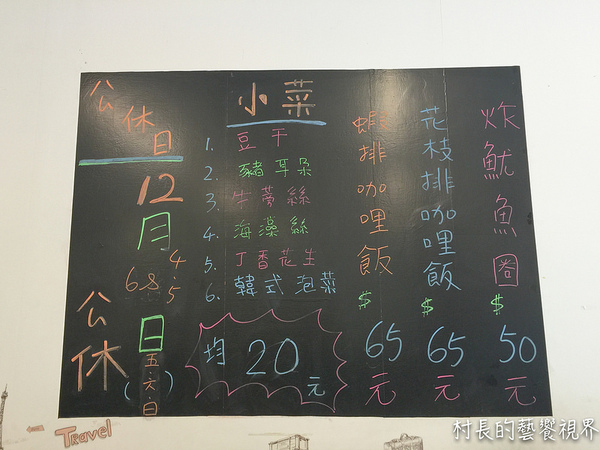 公休日
12
月
4.5
6.8.
日
(五.六.日)
公休
小菜
1. 豆干
2. 豬耳朵
3. 牛蒡絲
4. 海藻絲
5. 丁香花生
6. 韓式泡菜
均20元
蝦排咖哩飯
$65元
花枝排咖哩飯
$65元
炸魷魚圈
$50元
Travel
村長的藝饗視界